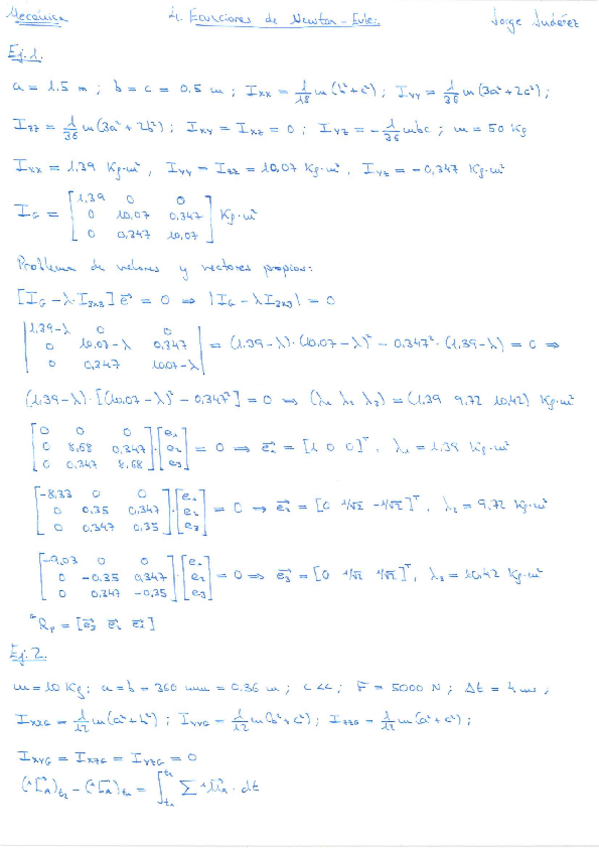 Mecánica 4. Ecuaciones de Newton-Euler Jorge
Ej.1.
a = 1.5 m ; b = c = 0.5 m ; Ixx = 1/18 m(b²+c²) ; Iyy = 1/36 m(3a²+2c²) ;
Izz = 1/36 m(3a²+2b²) ; Ixy = Ixz = 0 ; Iyz = -1/36 mbc ; m = 50 Kg
Ixx = 1.39 Kg·m² , Iyy = Izz = 10,07 Kg·m² , Iyz = -0,347 Kg·m²
IG = [1,39 0 0
0 10,07 0,347
0 0,347 10,07] Kg·m²
Problema de valores y vectores propios:
[IG - λ·I3x3] e⃗ = 0 ⇒ |IG - λI3x3| = 0
|1.39-λ 0 0
0 10.07-λ 0,347
0 0,347 10.07-λ| = (1.39-λ)·(10,07-λ)² - 0.347²·(1.39-λ) = 0 ⇒
(1.39-λ)·[(10,07-λ)² - 0,347²] = 0 ⇒ (λ1 λ2 λ3) = (1.39 9.72 10,42) Kg·m²
[0 0 0
0 8,68 0,347
0 0,347 8,68]·[e1 e2 e3] = 0 ⇒ e⃗1 = [1 0 0]ᵀ, λ1 = 1.39 Kg·m²
[-8,33 0 0
0 0,35 0,347
0 0,347 0,35][e1 e2 e3] = 0 ⇒ e⃗2 = [0 1/√2 -1/√2]ᵀ, λ2 = 9,72 Kg·m²
[-9,03 0 0
0 -0,35 0,347
0 0,347 -0,35]·[e1 e2 e3] = 0 ⇒ e⃗3 = [0 1/√2 1/√2]ᵀ, λ3 = 10,42 Kg·m²
ᴳRp = [e⃗3 e⃗2 e⃗1]
Ej.2.
m = 10 Kg; a = b = 360 mm = 0.36 m ; c << ; F = 5000 N ; Δt = 4 ms ;
IxxG = 1/12 m(a²+b²) ; IyyG = 1/12 m(b²+c²) ; IzzG = 1/12 m(a²+c²) ;
IxyG = IxzG = IyzG = 0